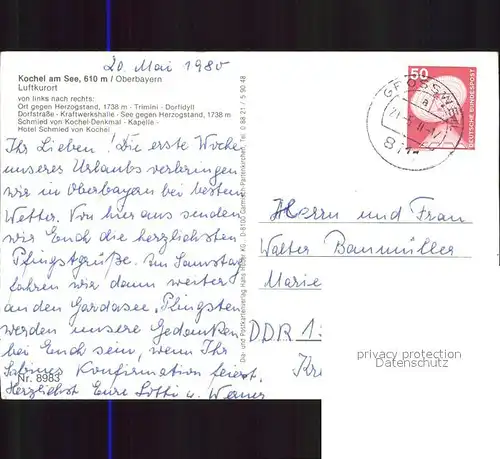 20 Mai 1980
Kochel am See, 610 m / Oberbayern
Luftkurort
von links nach rechts:
Ort gegen Herzogstand, 1738 m - Trimini - Dorfidyll
Dorfstraße - Kraftwerkshalle - See gegen Herzogstand, 1738 m
Schmied von Kochel-Denkmal - Kapelle -
Hotel Schmied von Kochel
Ihr Lieben! Die erste Woche
unseres Urlaubs verbringen
wir in Oberbayern bei bestem
Wetter. Von hier aus senden
wir Euch die herzlichsten
Pfingstgrüße. Am Samstag
fahren wir dann weiter
an den Gardasee. Pfingsten
werden unsere Gedanken
bei Euch sein, wenn Ihr
Konfirmation feiert.
Herzlichst Eure Lotti u. Werner
Nr. 8983
Bild- und Postkartenverlag Hans Huber KG, D-8100 Garmisch-Partenkirchen, Tel. 0 88 21 / 5 90 48
50
DEUTSCHE BUNDESPOST
GROSSWEIL
a
811
Herrn und Frau
Walter Baumüller
Marie
DDR 1
privacy protection
Datenschutz